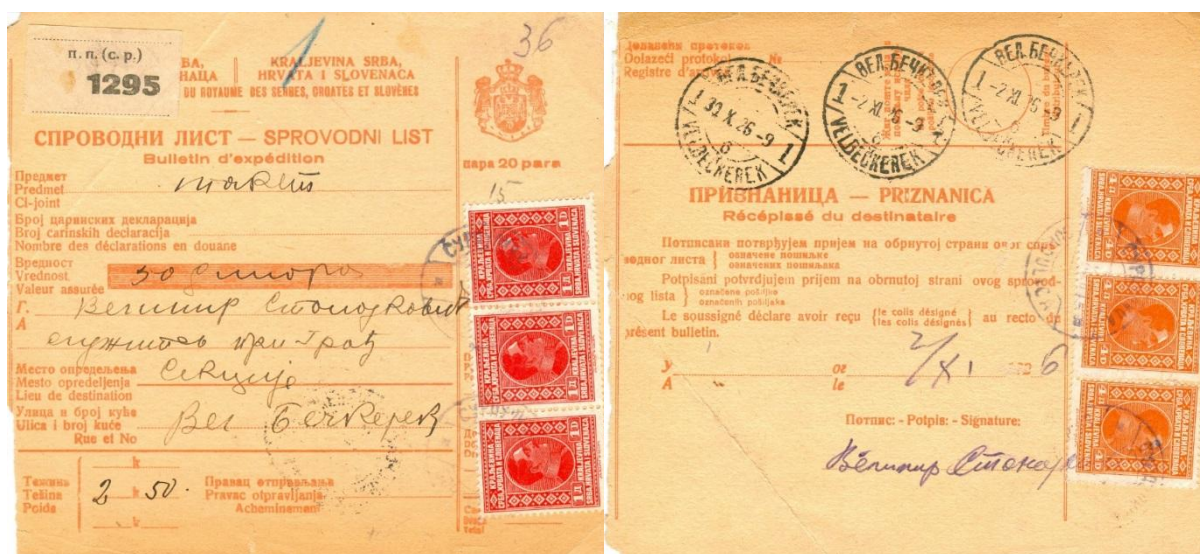 п. п. (с. р.)
1295
36
КRALJEVINA SRBA,
HRVATA I SLOVENACA
DU ROYAUME DES SERBES, CROATES ET SLOVÈNES
СПРОВОДНИ ЛИСТ — SPROVODNI LIST
Bulletin d'expédition
пара 20 para
Предмет
Predmet
Ci-joint
пакет
15
Број царинских декларација
Broj carinskih declaracija
Nombre des déclarations en douane
Вредност
Vrednost
Valeur assurée
50 динара
Г.
А
Велимир Стојковић
Место опредељења
Mesto opredeljenja
Lieu de destination
Секције
Улица и број куће
Ulica i broj kuće
Rue et No
Вел Бечкерек
Тежина
Težina
Poids
k
2 k 50.
k
Правац отправљања
Pravac otpravljanja
Acheminement
КРАЉЕВИНА
СРБА, ХРВАТА И СЛОВЕНАЦА
KRALJEVINA
SRBA, HRVATA I SLOVENACA
1 Д
1 D
Долазећи протокол
Dolazeći protokol
№
ВЕЛ.БЕЧКЕРЕК
1 30 X. 26 -9 1
6
VEL.BECKEREK
ВЕЛ.БЕЧКЕРЕК
1 -2 XI. 26 -9
6
VEL.BECKEREK
ВЕЛ.БЕЧКЕРЕК
1 -2 XI. 26 -9 1
6
VEL.BECKEREK
ПРИЗНАНИЦА — PRIZNANICA
Récépissé du destinataire
Потписани потврђујем пријем на обрнутој страни овог спро-
водног листа } означене пошиљке
означених пошиљака
Potpisani potvrdjujem prijem na obrnutoj strani ovog sprovod-
nog lista } označene pošiljke
označenih pošiljaka
Le soussigné déclare avoir reçu {le colis désigné
les colis désignés} au recto du
présent bulletin.
У
А
ог
le
2/XI 192 6
Потпис: - Potpis: - Signature:
Велимир